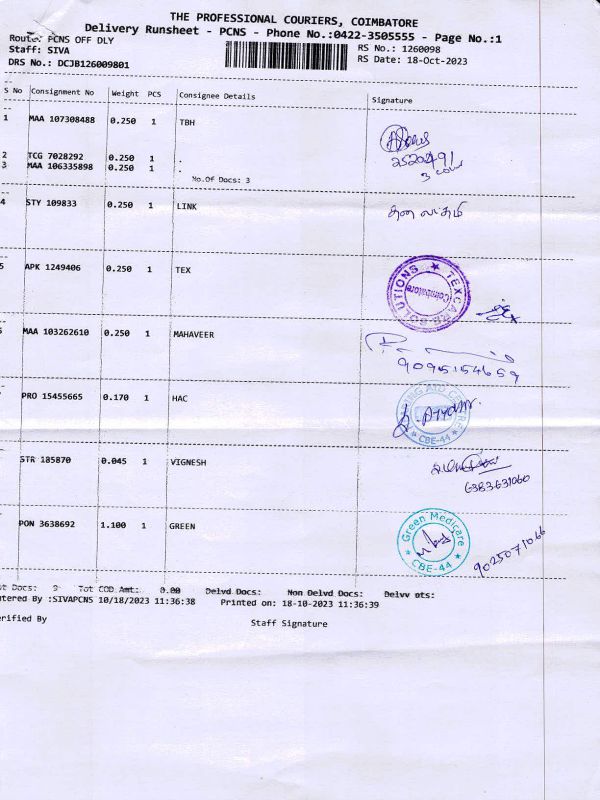 THE PROFESSIONAL COURIERS, COIMBATORE
Delivery Runsheet - PCNS - Phone No.:0422-3505555 - Page No.:1
Route: PCNS OFF DLY
RS No.: 1260098
Staff: SIVA
RS Date: 18-Oct-2023
DRS No.: DCJB126009801
S No Consignment No Weight PCS Consignee Details Signature
1 MAA 107308488 0.250 1 TBH
2 TCG 7028292 0.250 1 .
3 MAA 106335898 0.250 1 .
No.Of Docs: 3
2520491
4 STY 109833 0.250 1 LINK
5 APK 1249406 0.250 1 TEX
TEXCARE SOLUTIONS
Coimbatore
MAA 103262610 0.250 1 MAHAVEER
9095154659
PRO 15455665 0.170 1 HAC
CBE-44
STR 185870 0.045 1 VIGNESH
6383631060
PON 3638692 1.100 1 GREEN
Green Medicare
CBE-44
9025071066
Docs: 9 Tot COD Amt: 0.00 Delvd Docs: Non Delvd Docs: Delvv Dts:
tered By :SIVAPCNS 10/18/2023 11:36:38 Printed on: 18-10-2023 11:36:39
erified By
Staff Signature